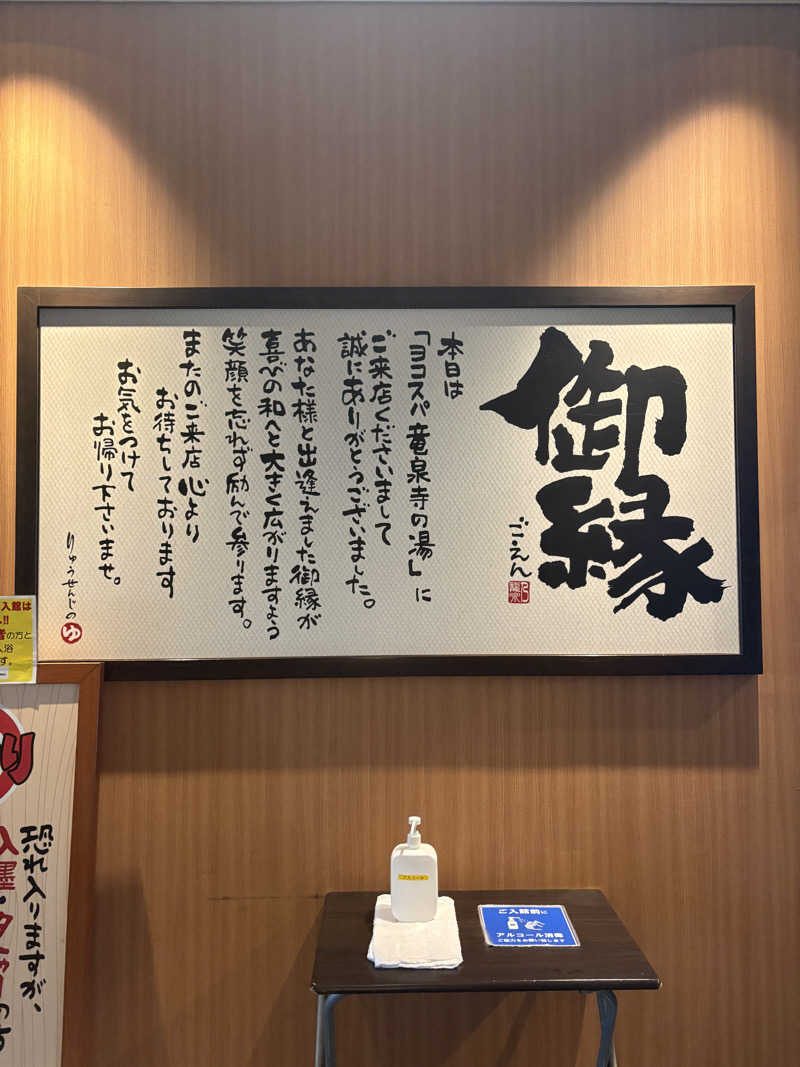 御縁
ご・えん
本日は
「ヨコスパ竜泉寺の湯」に
ご来店くださいまして
誠にありがとうございました。
あなた様と出逢えました御縁が
喜びの和へと大きく広がりますよう
笑顔を忘れず励んで参ります。
またのご来店心より
お待ちしております
お気をつけて
お帰り下さいませ。
りゅうせんじの
ゆ
入館は
!!
の方と
入浴
す。
り
恐れ入りますが、
入墨・タトゥーの方
アルコール
ご入館前に
アルコール消毒
ご協力をお願い致します